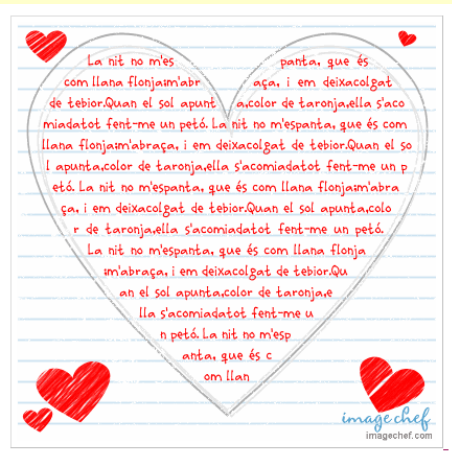 La nit no m'es panta, que és
com llana flonja:m'abr aça, i em deixacolgat
de tebior.Quan el sol apunt a,color de taronja,ella s'aco
miadatot fent-me un petó. La nit no m'espanta, que és com
llana flonja:m'abraça, i em deixacolgat de tebior.Quan el so
l apunta,color de taronja,ella s'acomiadatot fent-me un p
etó. La nit no m'espanta, que és com llana flonja:m'abra
ça, i em deixacolgat de tebior.Quan el sol apunta,colo
r de taronja,ella s'acomiadatot fent-me un petó.
La nit no m'espanta, que és com llana flonja
:m'abraça, i em deixacolgat de tebior.Qu
an el sol apunta,color de taronja,e
lla s'acomiadatot fent-me u
n petó. La nit no m'esp
anta, que és c
om llan
image chef
imagechef.com